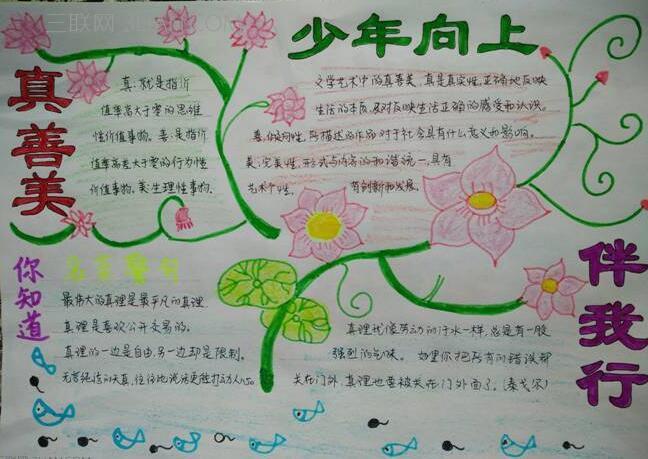 三联网 3LIAN.COM
少年向上
真善美
真：就是指价
值率高大于零的思维
性价值事物。善：是指价
值率高差大于零的行为性
价值事物。美：生理性事物.
文学艺术中的真善美，真是真实性，正确地反映
生活的本质及对反映生活正确的感受和认识。
善，倾向性，所描述的作的对于社会具有什么意义和影响。
美，完美性，形式与内容的和谐统一，具有
艺术个性，有创新和发展。
你知道
名言警句
最伟大的真理是最平凡的真理
真理是喜欢公开交易的。
真理的一边是自由，另一边却是限制。
真理就像劳动的汗水一样，总是有一股
强烈的气味。如果你把所有的错误都
关在门外，真理也要被关在门外面了。(泰戈尔)
伴我行